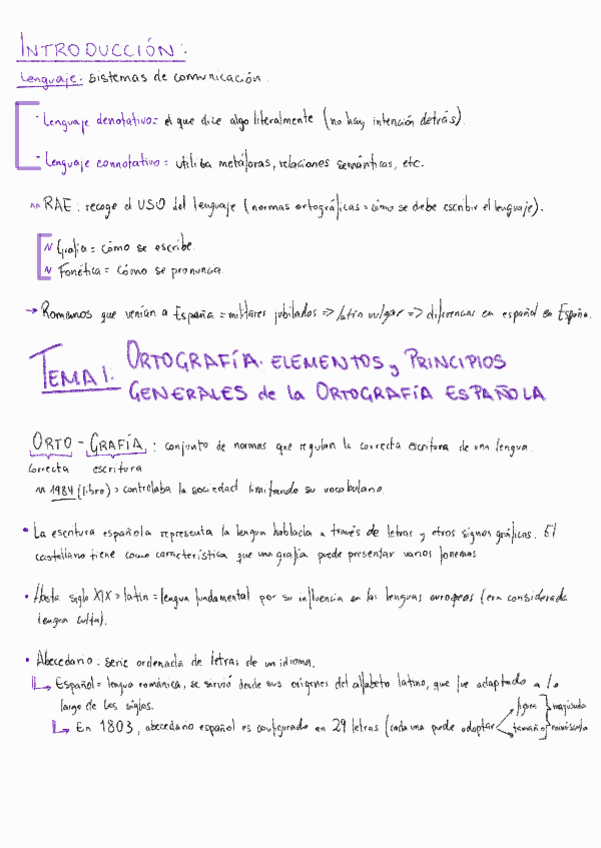 INTRODUCCIÓN:
Lenguaje: sistemas de comunicación.
- Lenguaje denotativo = el que dice algo literalmente (no hay intención detrás).
- Lenguaje connotativo = utiliza metáforas, relaciones semánticas, etc.
RAE: recoge el USO del lenguaje (normas ortográficas = cómo se debe escribir el lenguaje).
Grafía = cómo se escribe
Fonética = Cómo se pronuncia
→ Romanos que venían a España = militares jubilados => latín vulgar => diferencias en español en España.
TEMA 1. ORTOGRAFÍA. ELEMENTOS y PRINCIPIOS
GENERALES de la ORTOGRAFÍA ESPAÑOLA
ORTO - GRAFÍA: conjunto de normas que regulan la correcta escritura de una lengua.
correcta escritura
1984 (libro) > controlaba la sociedad limitando su vocabulario.
• La escritura española representa la lengua hablada a través de letras y otros signos gráficos. El
castellano tiene como característica que una grafía puede presentar varios fonemas
• Hasta siglo XIX > latín = lengua fundamental por su influencia en las lenguas europeas (era considerada
lengua culta).
• Abecedario: serie ordenada de letras de un idioma.
Español = lengua románica, se sirvió desde sus orígenes del alfabeto latino, que fue adaptado a lo
largo de los siglos.
En 1803, abecedario español es configurado en 29 letras (cada una puede adoptar figura tamaño mayúscula minúscula